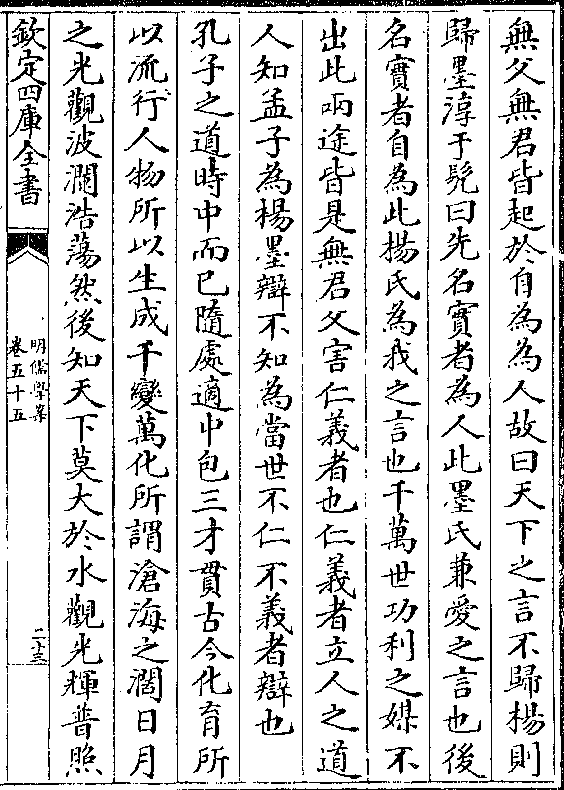 無父無君皆起於自為為人故曰天下之言不歸楊則
歸墨淳于髠曰先名實者為人此墨氏兼愛之言也後
名實者自為此楊氏為我之言也千萬世功利之媒不
出此兩途皆是無君父害仁義者也仁義者立人之道
人知孟子為楊墨辯不知為當世不仁不義者辯也
孔子之道時中而已隨處適中包三才貫古今化育所
以流行人物所以生成千變萬化所謂滄海之濶日月
之光觀波瀾浩蕩然後知天下莫大於水觀光輝普照
欽定四庫全書
明儒學案
卷五十五
二十三